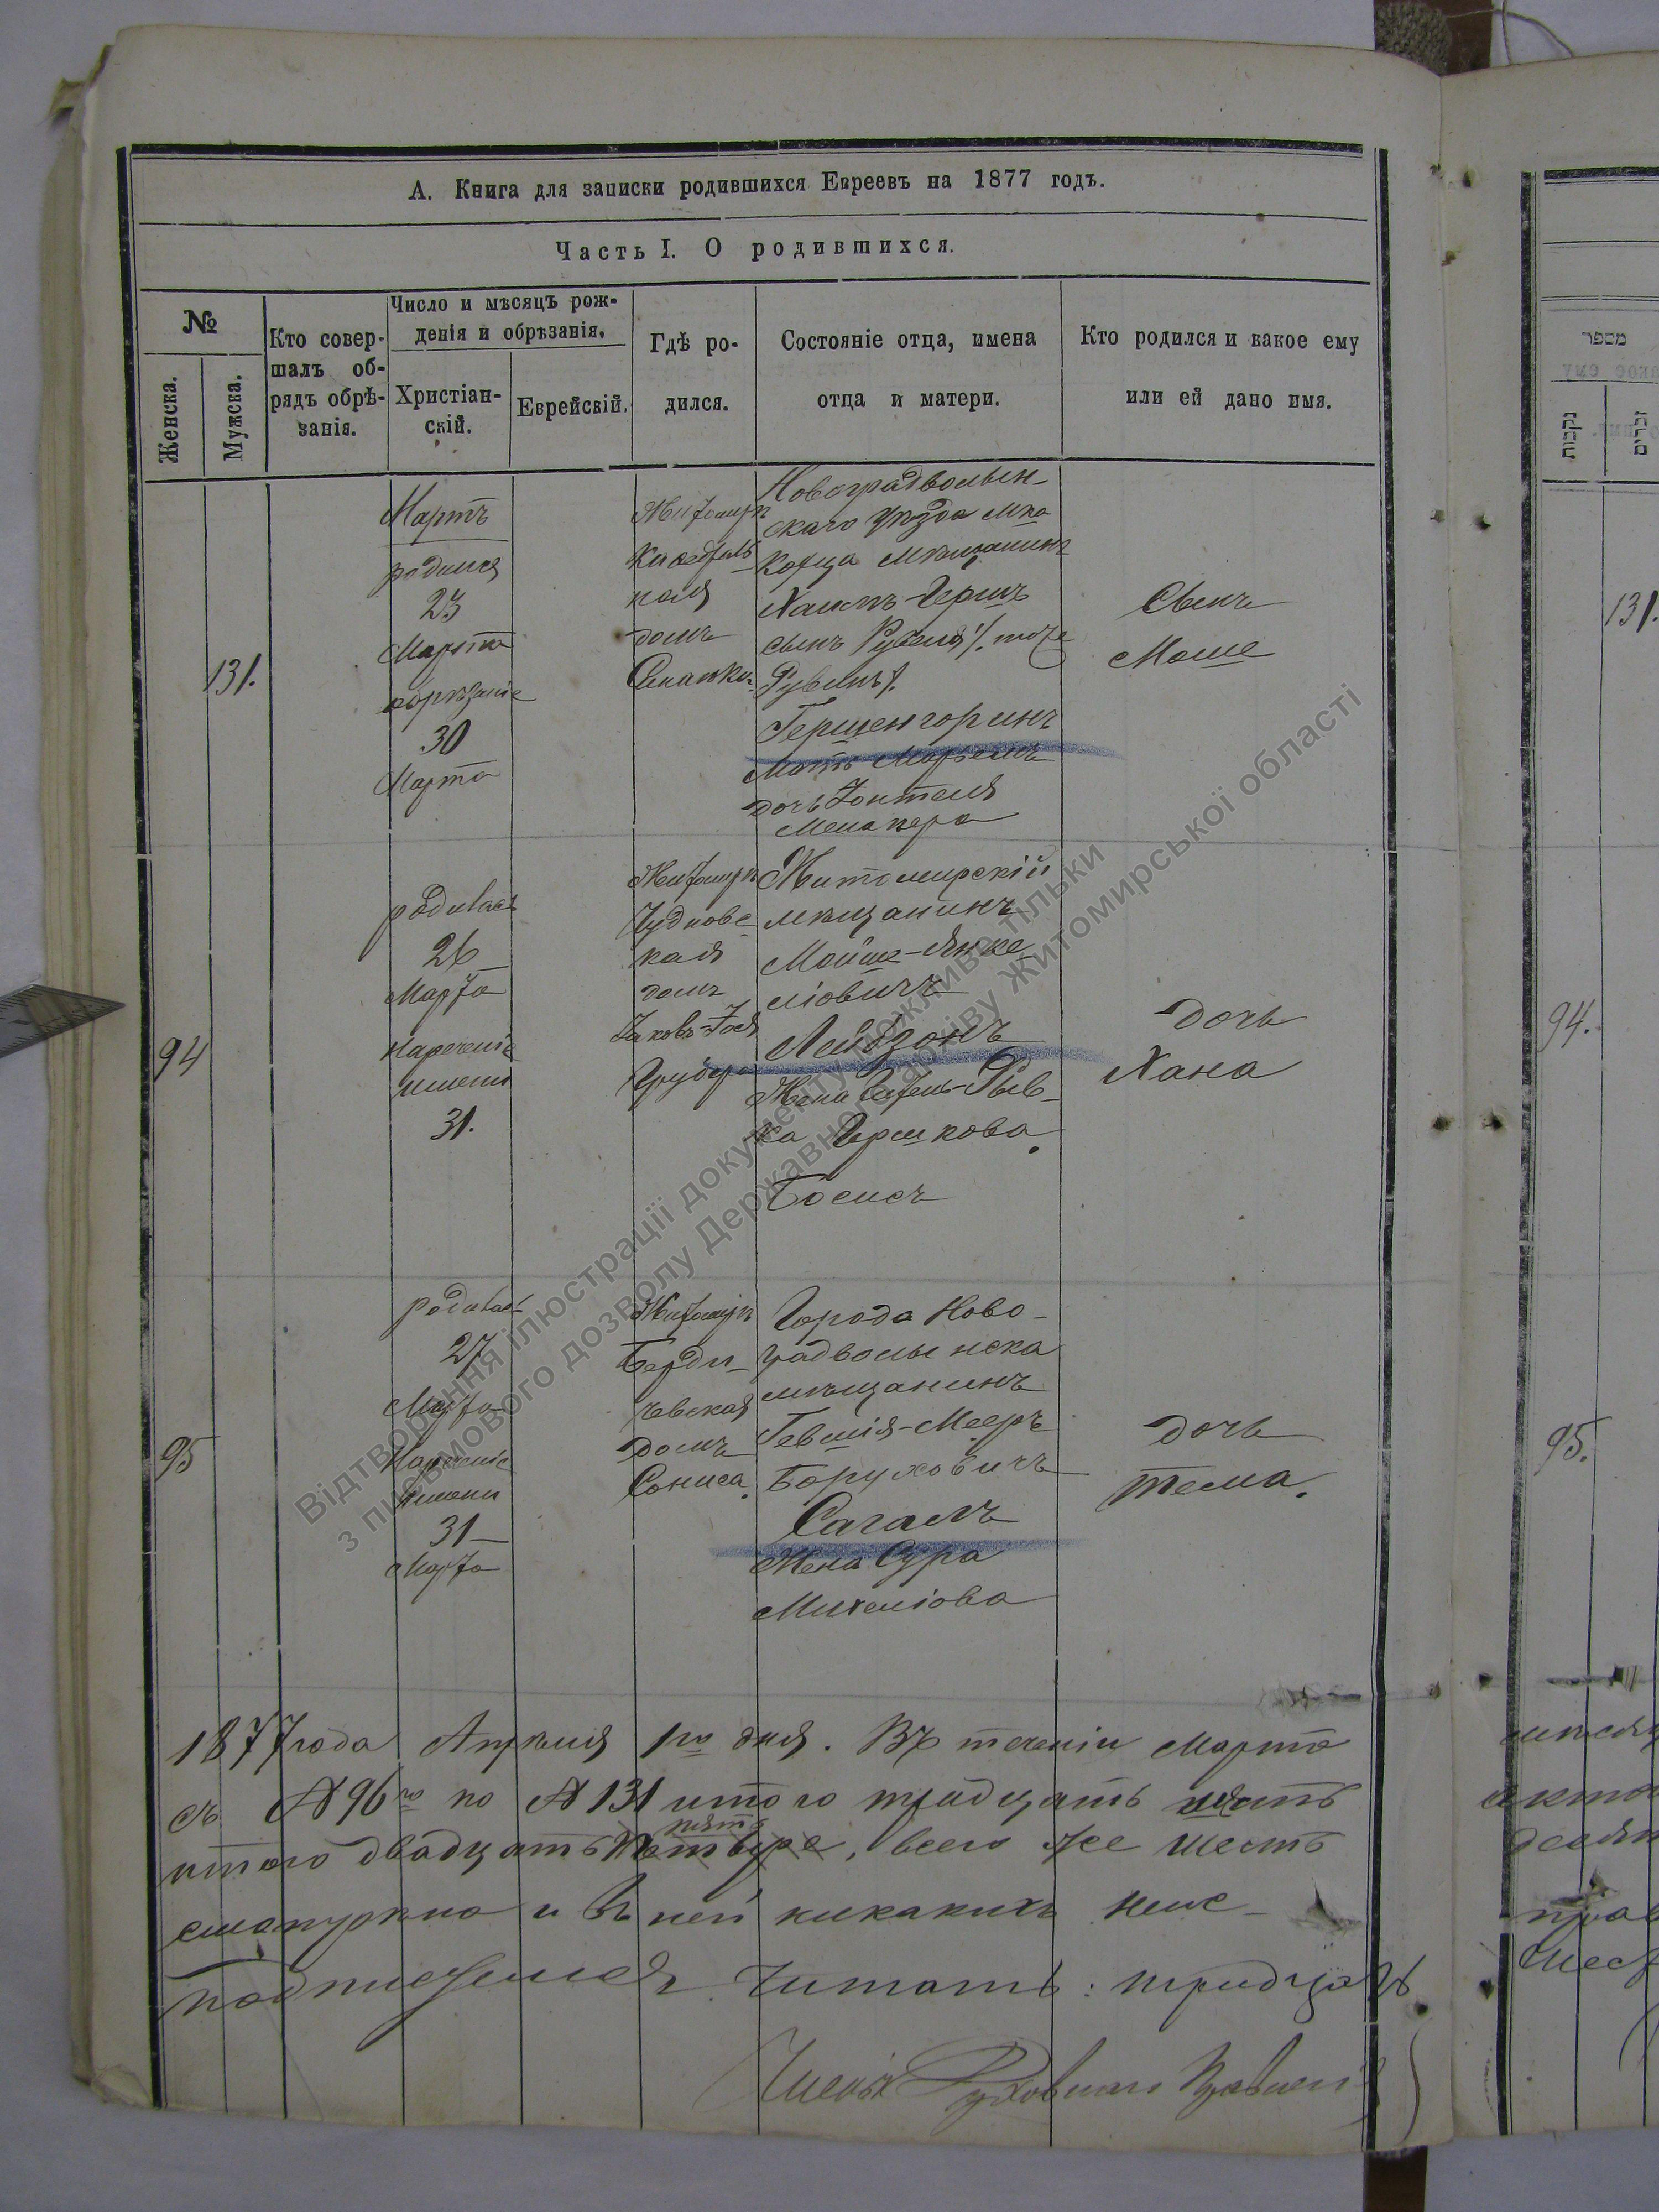 А. Книга для записки родившихся Евреевъ на 1877 годъ.
Часть I. О родившихся.
№
Женска.
Мужска.
Кто совер-
шалъ об-
рядъ обрѣ-
занія.
Число и мѣсяцъ рож-
денія и обрѣзанія.
Христіан-
скій.
Еврейскій.
Гдѣ ро-
дился.
Состояніе отца, имена
отца и матери.
Кто родился и какое ему
или ей дано имя.
131.
Мартъ
родился
23
Марта
обрѣзаніе
30
Марта
Житомиръ
ная
домъ
Новоградволын-
скаго уѣзда м-ка
Корца мѣщанинъ
Хаимъ-Гершъ
сынъ Рувеля /. тоже
Рувинъ /.
Гершенгоринъ
Мать Марьемъ
дочь Зонтеля
Менакера
Сынъ
Моше
94
родилась
26
Марта
нареченіе
имени
31.
Житомиръ
Чуднов-
ская
домъ
Житомирскій
мѣщанинъ
Мойше-Янке-
ліовичъ
Лейбзонъ
Жена Рыв-
ка Гершкова
дочь
Хана
95
родилась
27
Марта
Нареченіе
имени
31
Марта
Житомиръ
Берди-
чевская
домъ
Города Ново-
градволынска
мѣщанинъ
Гевшія-Мееръ
Боруховичъ
Сагалъ
Жена Сура
Михеліова
дочь
Тема.
1877 года Апреля 1го дня. Въ теченіи Марта
съ № 96го по № 131 итого тридцать
итого двадцать пять, всего же шесть
и въ ней никакихъ
Читать: тридцать
מספר
נקבות
זכרים
131.
94.
95.
Відтворення ілюстрації документу можливе тільки
з письмового дозволу Державного архіву Житомирської області